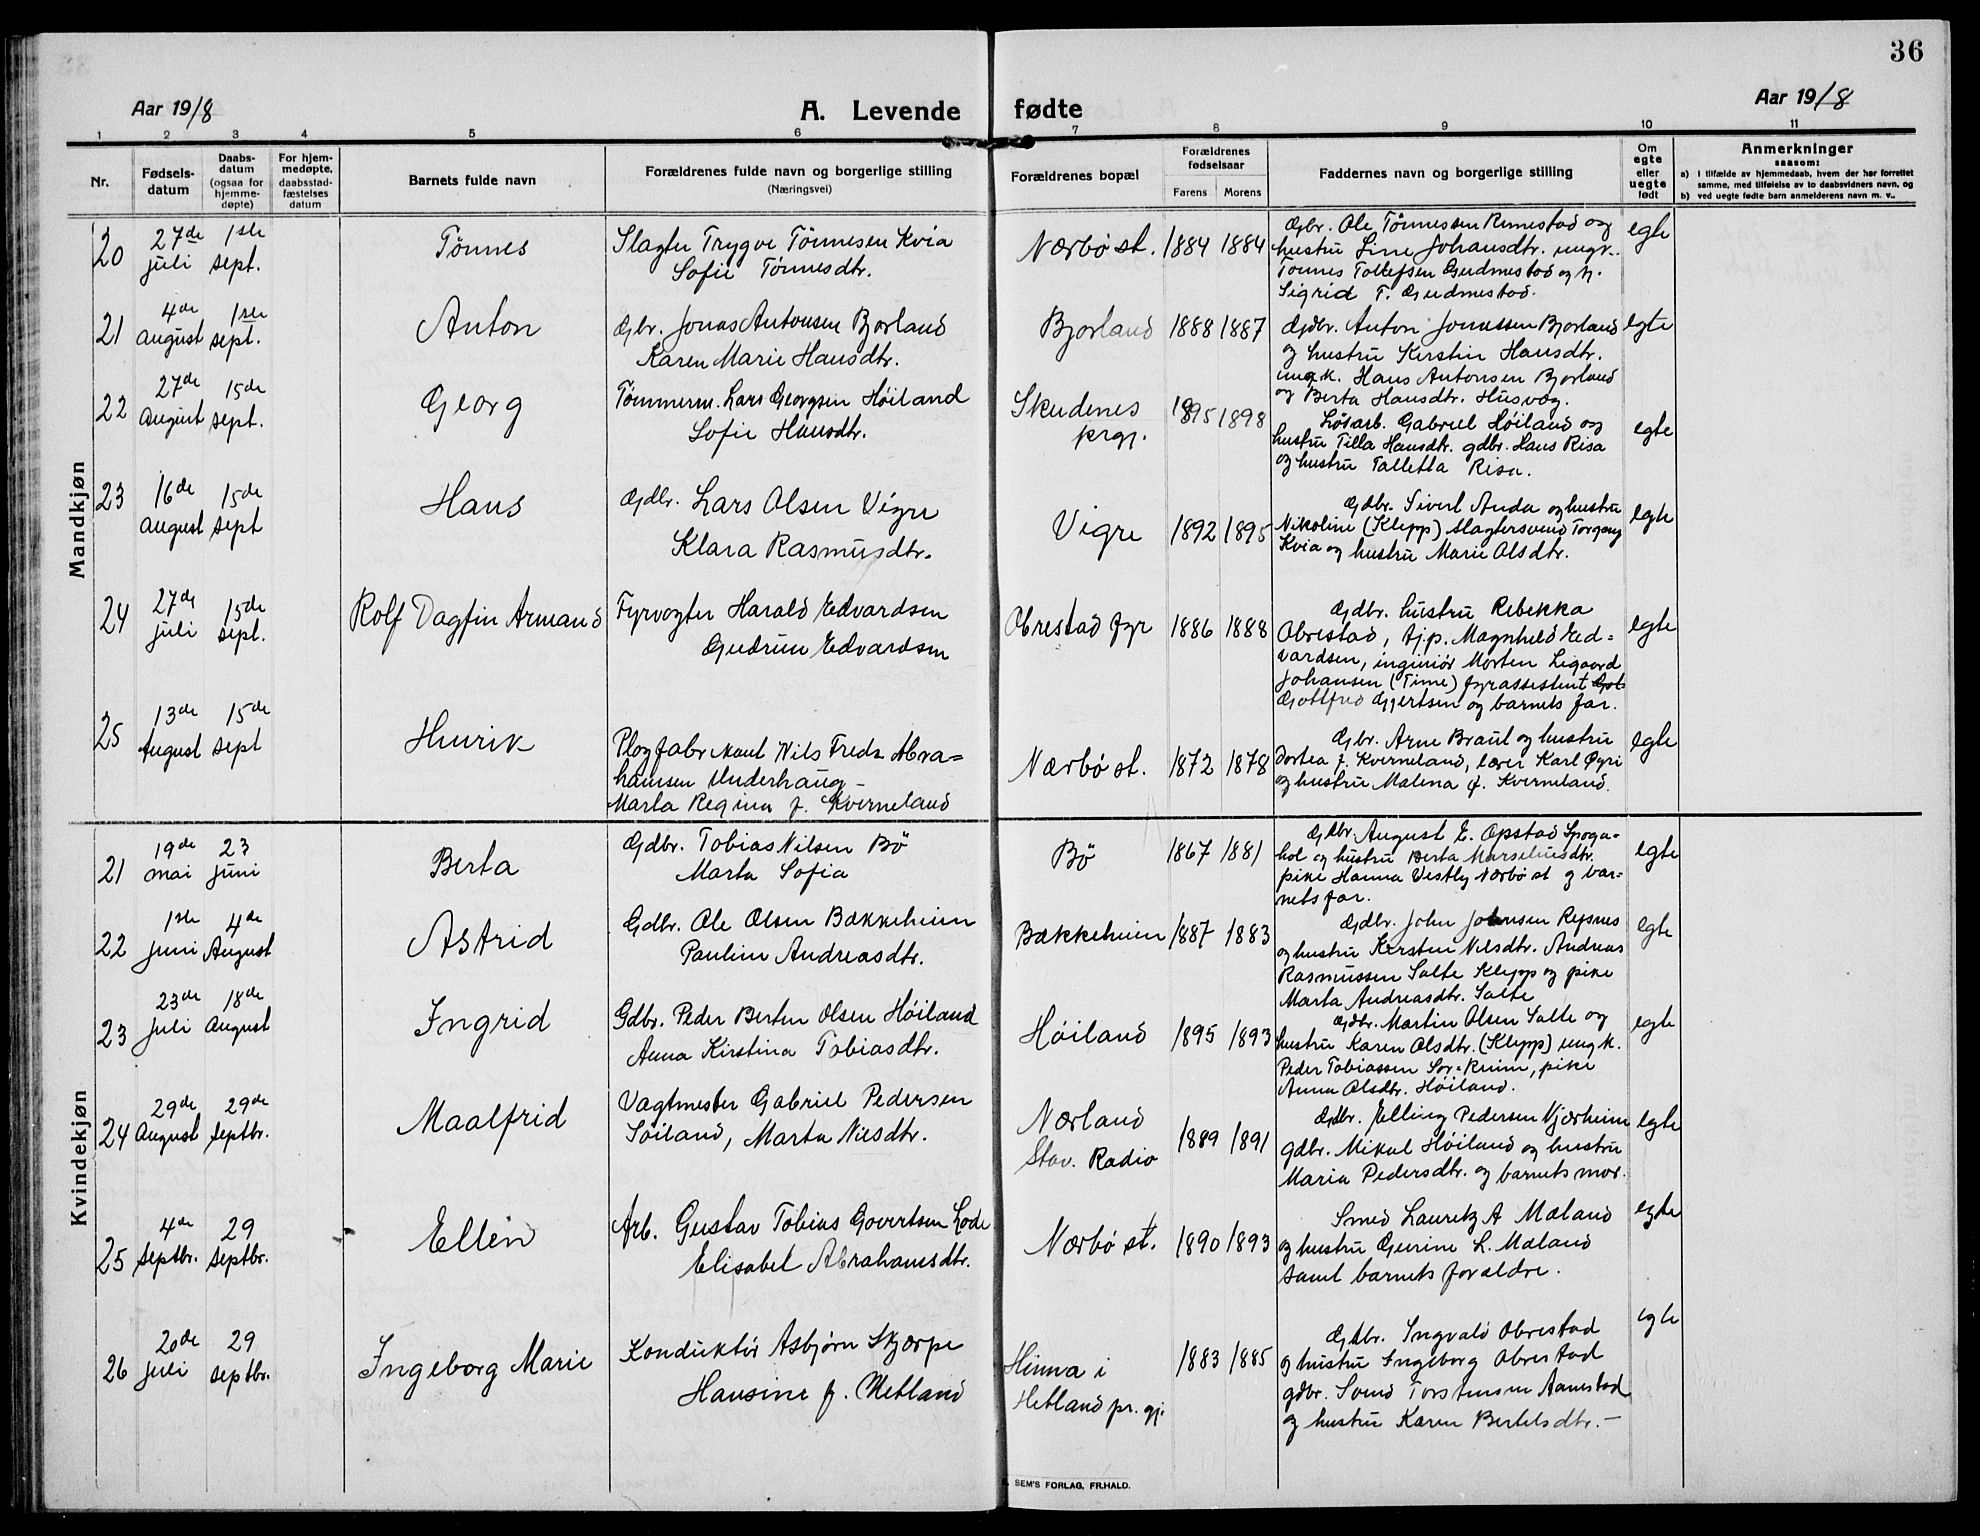 36
Aar 1918
A. Levende fødte
Aar 1918
1 2 3 4 5 6 7 8 9 10 11
Nr.
Fødsels-
datum
Daabs-
datum
(ogsaa for
hjemme-
døpte)
For hjem-
medøpte,
daabsstad-
fæstelses
datum
Barnets fulde navn
Forældrenes fulde navn og borgerlige stilling
(Næringsvei)
Forældrenes bopæl
Forældrenes
fødselsaar
Farens Morens
Faddernes navn og borgerlige stilling
Om
egte
eller
uegte
født
Anmerkninger
saasom:
a) I tilfælde av hjemmedaab, hvem der har forrettet
samme, med tilføielse av to daabsvidners navn, og
b) ved uegte fødte barn anmelderens navn m. v..
Mandkjøn
20
27de
juli
1ste
sept.
Tønnes
Slagter Trygve Tönnesen Kvia
Sofie Tönnesdtr.
Nærbö st.
1884 1884
Gbr. Ole Tönnessen Rimestad og
hustru Line Johansdtr. ungk.
Tönnes Tollefsen Gudmestad og
Sigrid T. Gudmestad.
egte
21
4de
August
1ste
sept.
Anton
Gbr. Jonas Antonsen Bjorland
Karen Marie Hansdtr.
Bjorland
1888 1887
Gdbr. Anton Jonassen Bjorland
og hustru Kirstin Hansdtr.
ungk. Hans Antonsen Bjorland
og Berta Hansdtr. Husvæg.
egte
22
27de
August
15de
sept.
Georg
Tømmerm. Lars Georgsen Høiland
Sofie Hansdtr.
Skudenes
prgj.
1895 1898
Lösarb. Gabriel Høiland og
hustru Tilla Hansdtr. gdbr. Hans Risa
og hustru Talletta Risa.
egte
23
16de
August
15de
sept
Hans
Gdbr. Lars Olsen Vigre
Klara Rasmusdtr.
Vigre
1892 1895
Gdbr. Sivert Anda og hustru
Nikoline (Klepp) slagtersvend Torgny
Kvia og hustru Marie Olsdtr.
egte
24
27de
juli
15de
sept.
Rolf Dagfin Armand
Fyrvogter Harald Edvardsen
Gudrun Edvardsen
Obrestad fyr
1886 1888
Gdbr. hustru Rebekka
Obrestad, tj.p. Magnhild Ed=
vardsen, ingeniør Morten Ligaard
Johansen (Time) fyrassistent
Gottfred Gjertsen og barnets far.
egte
25
13de
August
15de
sept
Henrik
Plogfabrikant Nils Fredr. Abra=
hamsen Underhaug -
Marta Regina f. Kverneland
Nærbö st.
1872 1878
Gbr. Arne Braut og hustru
Dortea f. Kverneland, lærer Karl Øyri
og hustru Malena f. Kverneland.
egte
Kvindekjøn
21
19de
mai
23
juni
Berta
Gdbr. Tobias Nilsen Bö
Marta Sofia
Bö
1867 1881
Gdbr. August E. Opstad
hol og hustru Berta Marseliusdtr.
pike Hanna Vestly Nærbö st og bar=
nets far.
egte
22
1ste
juni
4de
August
Astrid
Gdbr. Ole Olsen Bækkeheien
Pauline Andreasdtr.
Bækkeheien
1887 1883
Gdbr. John Johnsen Refsnes
og hustru Kirsten Nilsdtr. Andreas
Rasmussen Salte Klepp og pike
Marta Andreasdtr. Salte
egte
23
23de
Juli
18de
August
Ingrid
Gdbr. Peder Bertin Olsen Høiland
Anna Kirstina Tobiasdtr.
Høiland
1895 1893
Gdbr. Martin Olsen Salte og
hustru Karen Olsdtr. (Klepp) ungk.
Peder Tobiassen Sør=Reime, pike
Anna Olsdtr. Høiland.
egte
24
29de
August
29de
septbr.
Maalfrid
Vagtmester Gabriel Pedersen
Soiland, Marta Nilsdtr.
Nærland
Stav. Radio
1889 1891
Gdbr. Elling Pedersen Njærheim
gdbr. Mikal Høiland og hustru
Maria Pedersdtr. og barnets mor.
egte
25
4de
septbr.
29
septbr.
Ellen
Arb. Gustav Tobias Govertsen Lode
Elisabet Abrahamsdtr.
Nærbö st.
1890 1893
Smed Lauritz A Maland
og hustru Gurine L. Maland
samt barnets forældre.
egte
26
20de
juli
29
septbr.
Ingeborg Marie
Konduktör Asbjørn Skjærpe
Hansine f. Hetland
Hinna i
Hetland pr.gj.
1883 1885
Gdbr. Ingvald Obrestad
og hustru Ingeborg Obrestad
gdbr. Svend Torstensen Aanestad
og hustru Karen Bertelsdtr. -
egte
SEM'S FORLAG, FR.HALD.